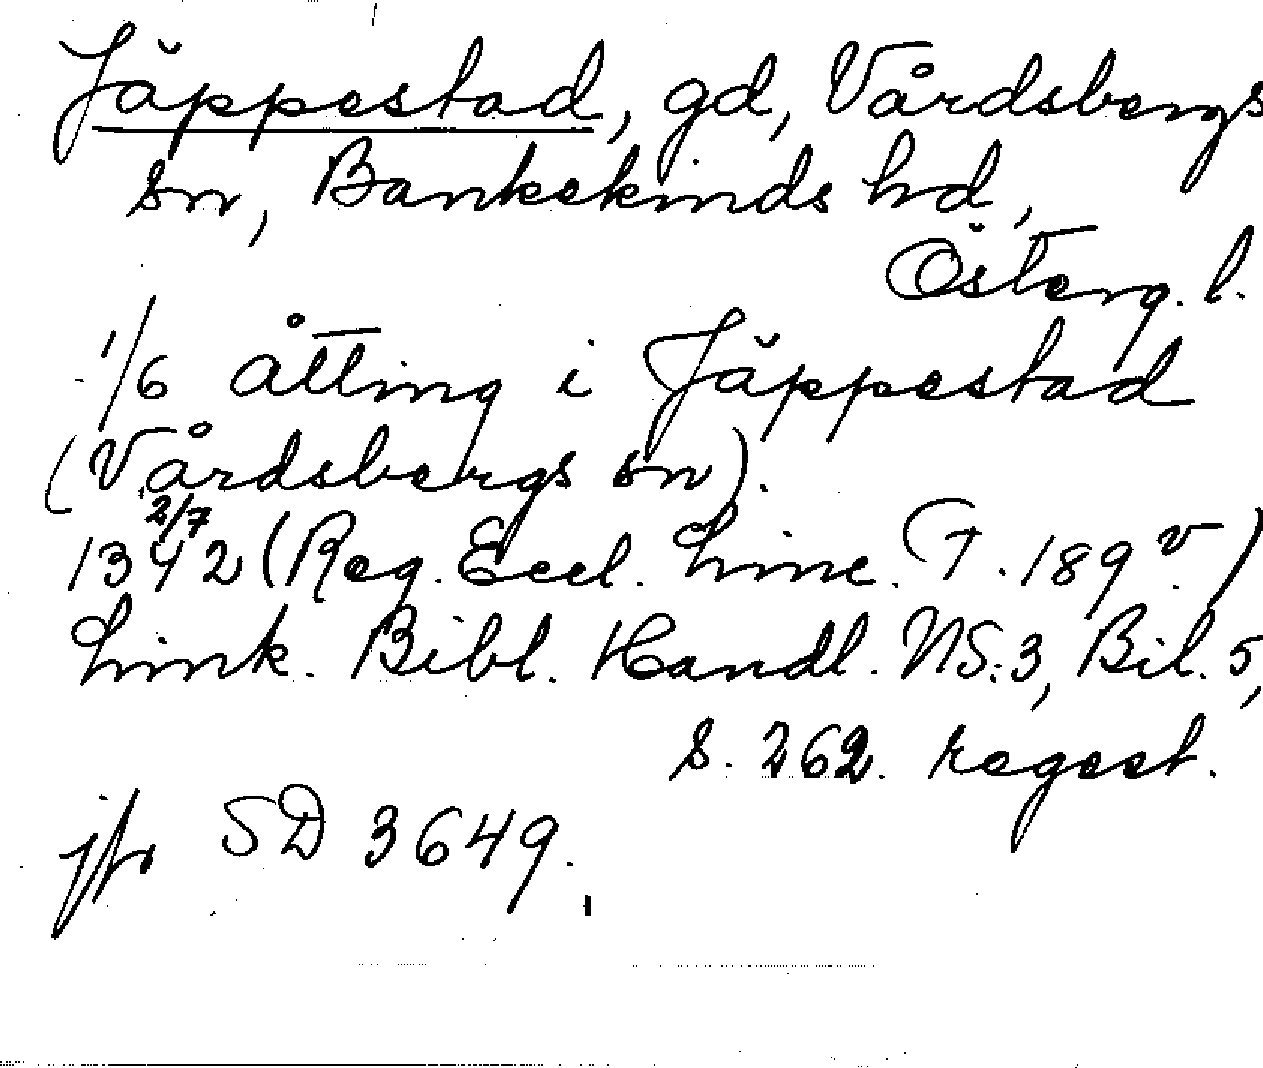 Jäppestad, gd, Vårdsbergs
sn, Bankekinds hd,
Österg. l.
1/6 åtting i Jäppestad
(Vårdsbergs sn).
2/7
1342 (Reg. Eccl. Linc. T. 189 v.)
Link. Bibl. Handl. NS:3, Bil. 5,
s. 262. regest.
jfr SD 3649.